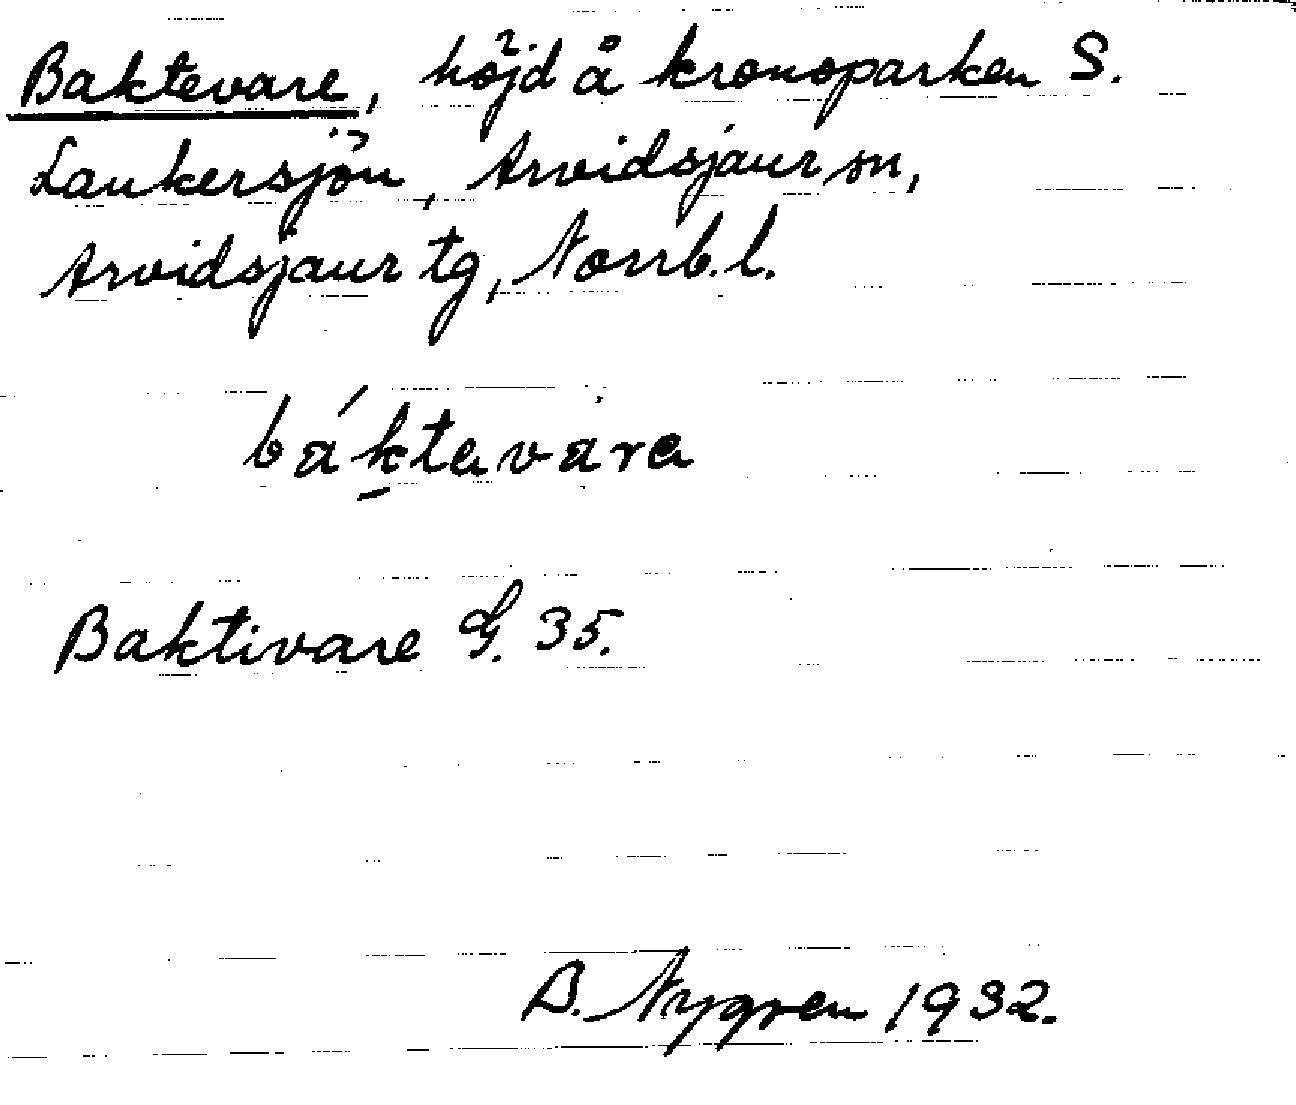 Baktevare, höjd å kronoparken S.
Laukersjön, Arvidsjaur sn,
Arvidsjaur tg, Norrb. l.
báktavárɛ
Baktivare G. 35.
D. Nygren 1932.